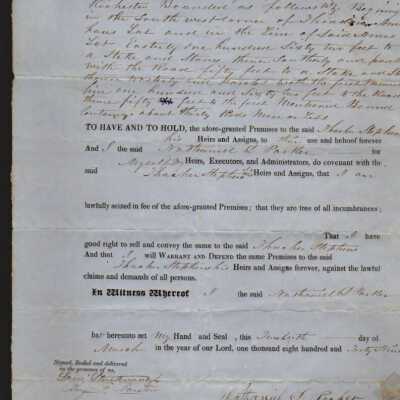 Rochester Bounded as follows viz Begin
in the South west corner of
Lot and in the Line of Said
Lot Easterly One hundred Sixty two feet to
a Stake and Stones, thence Southerly and
with the fifty feet to a Stake and
him one hundred and sixty two feet to the
thence fifty feet to the first Mentioned Bound
Containing about thirty Rods More or Less
TO HAVE AND TO HOLD, the afore-granted Premises to the said Thacher Stephens
his Heirs and Assigns, to his use and behoof forever
And I the said Nathaniel S. Parker for
Myself & Heirs, Executors, and Administrators, do covenant with the
said Thacher Stephens Heirs and Assigns, that I am
lawfully seized in fee of the afore-granted Premises; that they are free of all incumbrances;
That I have
good right to sell and convey the same to the said Thacher Stephens
And that I will WARRANT AND DEFEND the same Premises to the said
Thacher Stephens his Heirs and Assigns forever, against the lawful
claims and demands of all persons.
In Witness Whereof I the said Nathaniel S. Parker
ha hereunto set My Hand and Seal, this day of
March in the year of our Lord, one thousand eight hundred and forty
Signed, Sealed and delivered
in the presence of us,
Nathaniel S. Parker